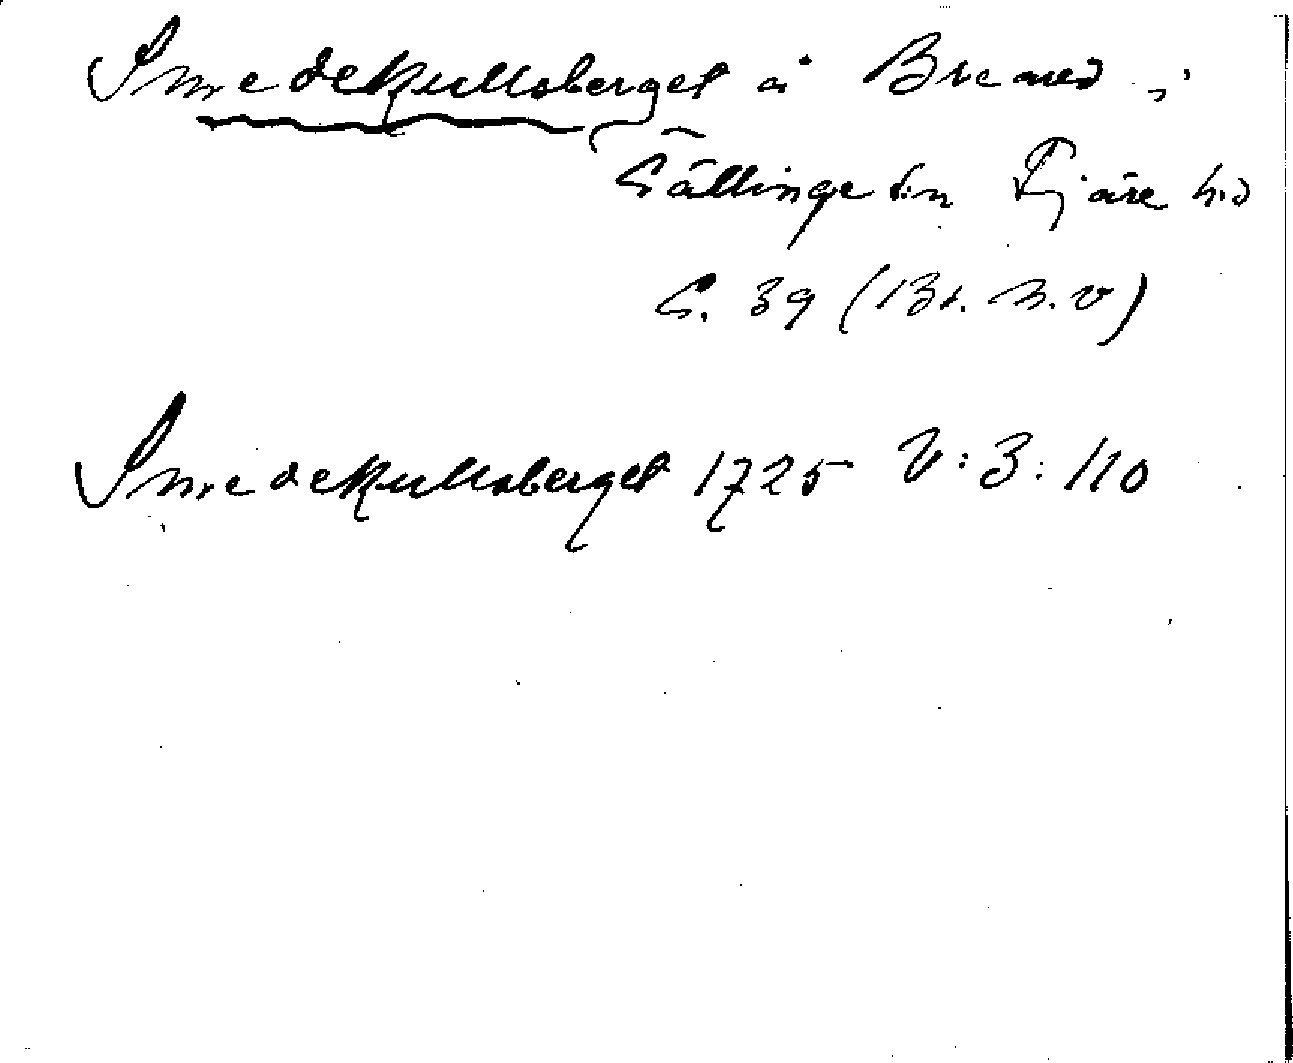 Smedekullsberget å Bremed i
Gällinge sn Fjäre hd
G. 39 (Bt. n. v)
Smedekullsberget 1725 V:3:110